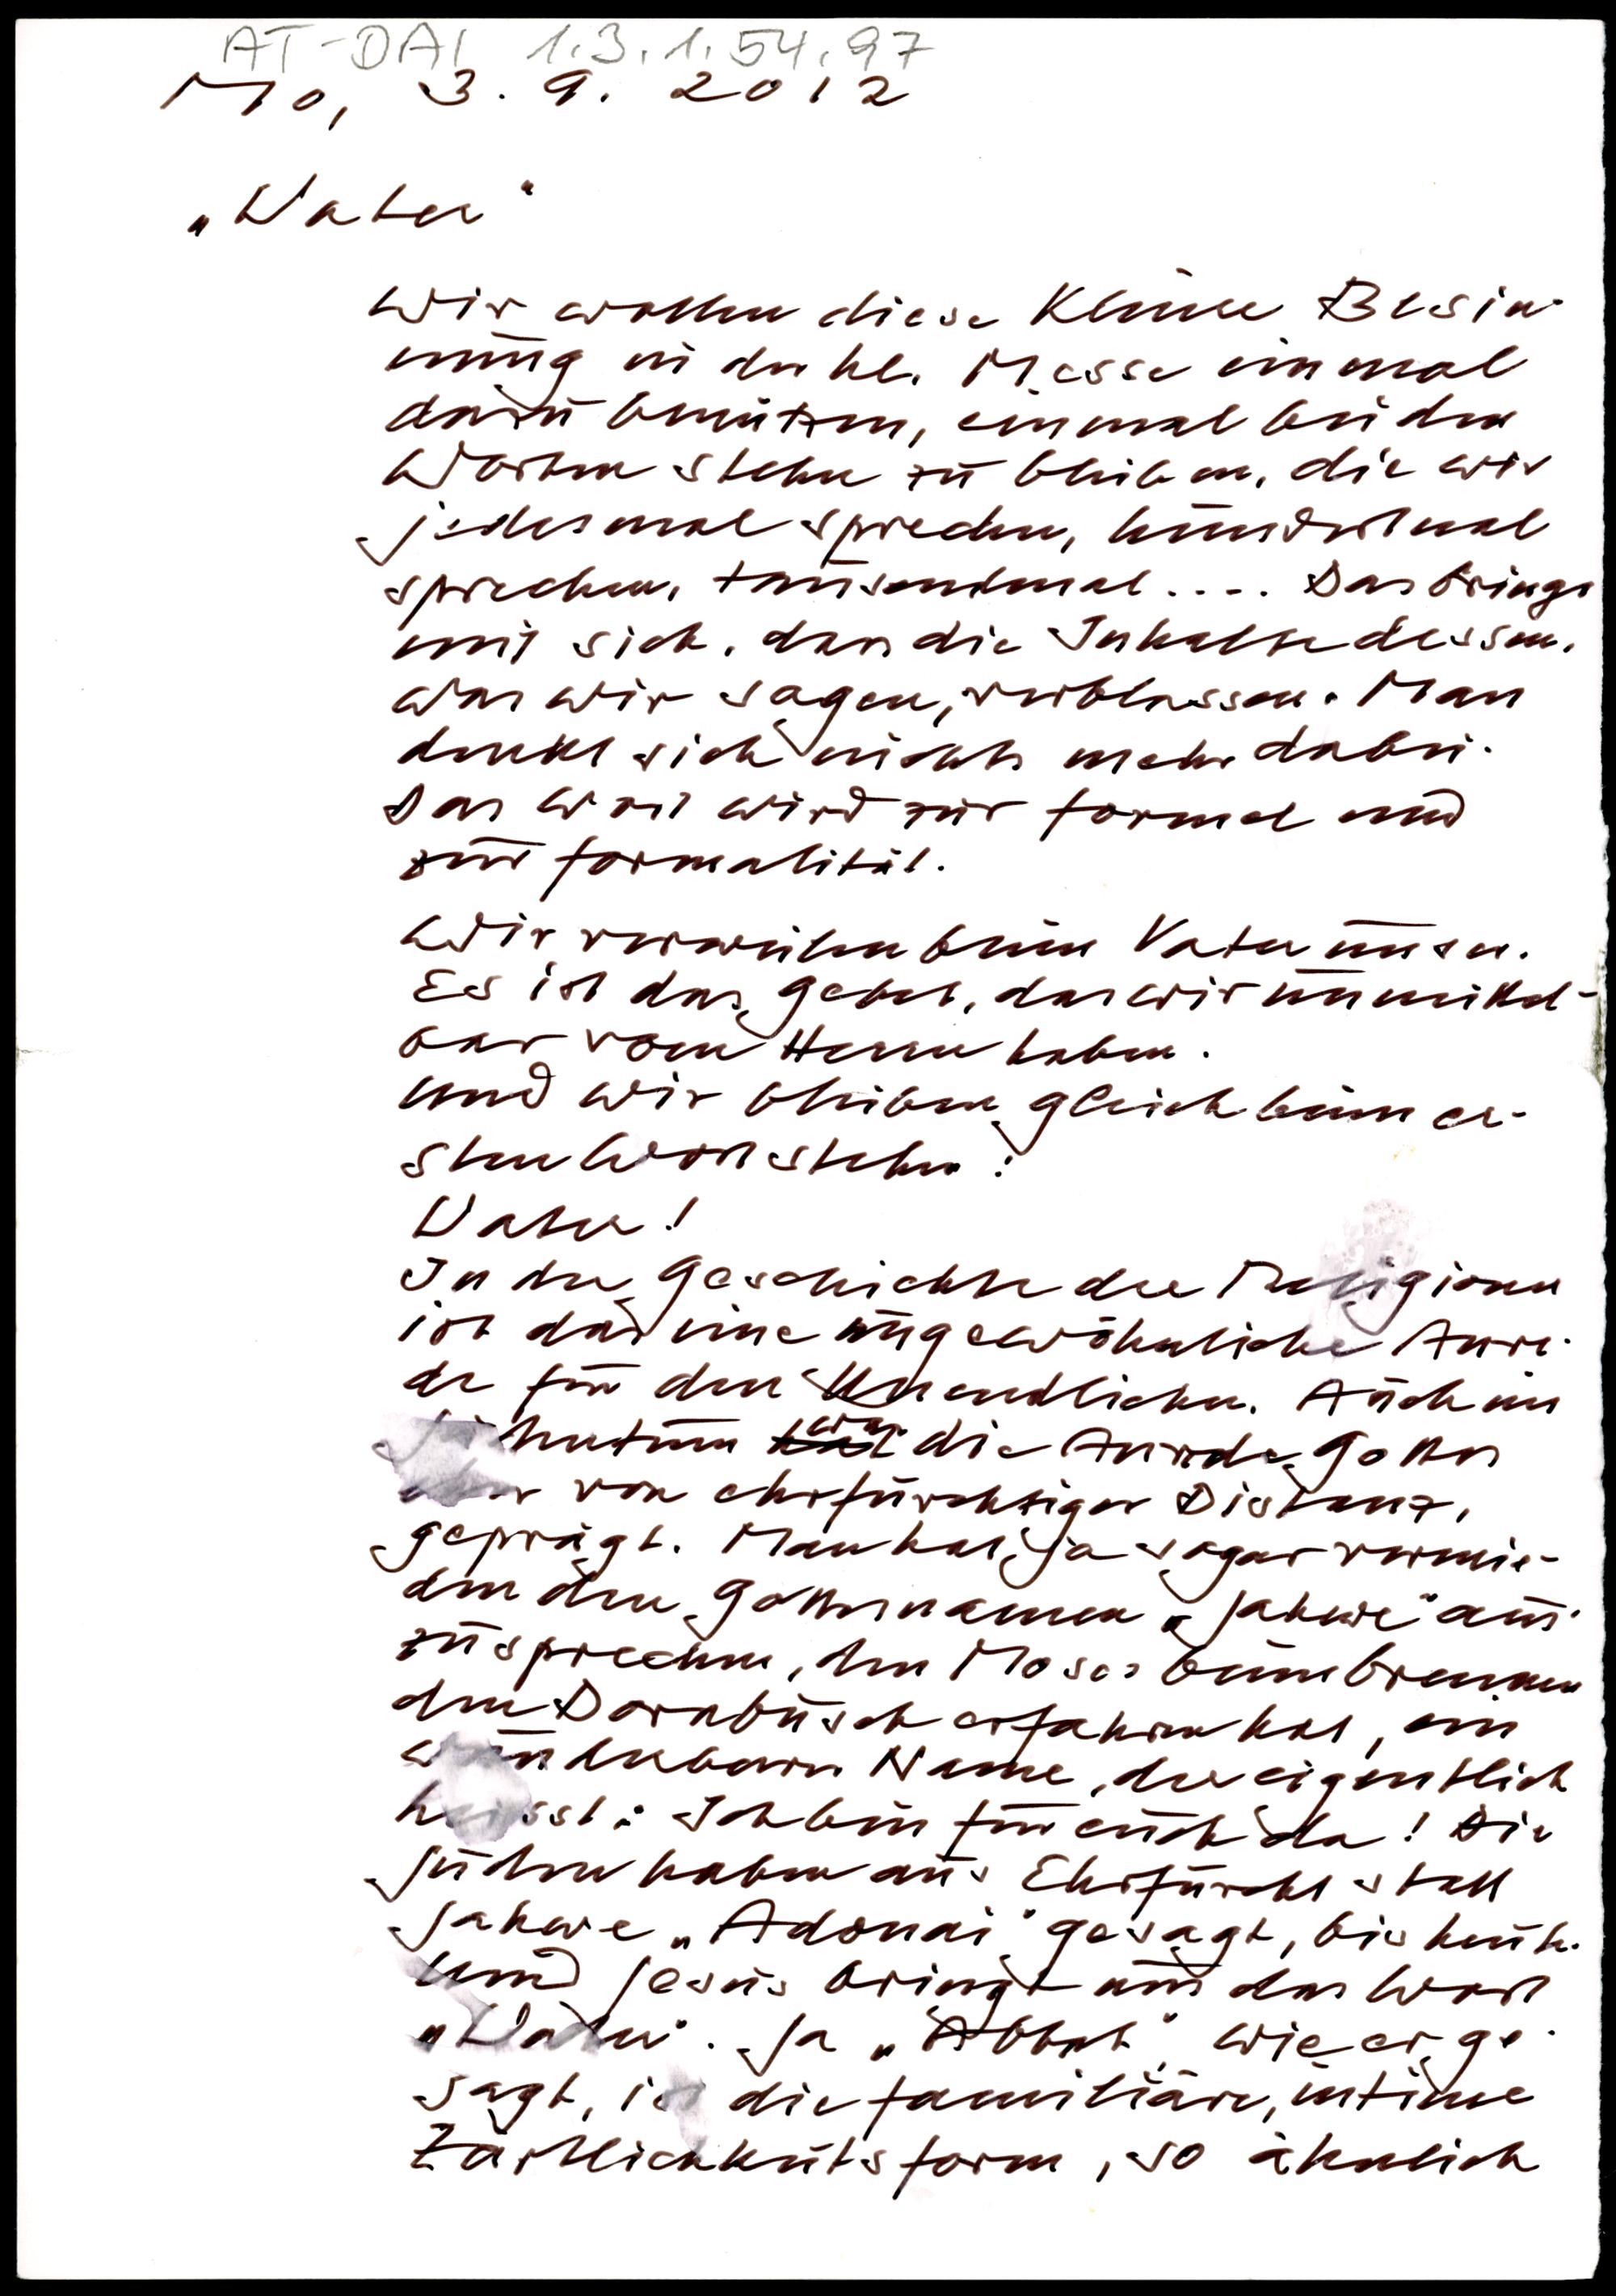 AT-DAI 1.3.1.54.97
Mo, 3. 9. 2012
„Vater"
Wir wollen diese kleine Besin-
nung in der hl. Messe einmal
dazu benützen, einmal bei den
Worten stehn zu bleiben, die wir
jedesmal sprechen, hundertmal
sprechen, tausendmal.... Das bringt
mit sich, dass die Inhalte dessen,
was wir sagen, verblassen. Man
denkt sich nichts mehr dabei.
Das Wort wird zur Formel und
zur Formalität.
Wir verweilen beim Vater unser.
Es ist das Gebet, das wir unmittel-
bar vom Herrn haben.
Und wir bleiben gleich beim er-
sten Wort stehn:
Vater!
In der Geschichte der Religionen
ist das eine ungewöhnliche Anre-
de für den Unendlichen. Auch im
war die Anrede Gottes
von ehrfürchtiger Distanz,
geprägt. Man hat ja sogar vermie-
den den Gottesnamen „Jahwe" aus-
zusprechen, den Moses beim brennen
den Dornbusch erfahren hat, ein
wunderbarer Name, der eigentlich
heisst: Ich bin für euch da! Die
Juden haben aus Ehrfurcht statt
Jahwe „Adonai" gesagt, bis heute.
Und Jesus bringt uns das Wort
„Vater". Ja „Abbah", wie er ge-
sagt, ist die familiäre, intime
Zärtlichkeitsform, so ähnlich